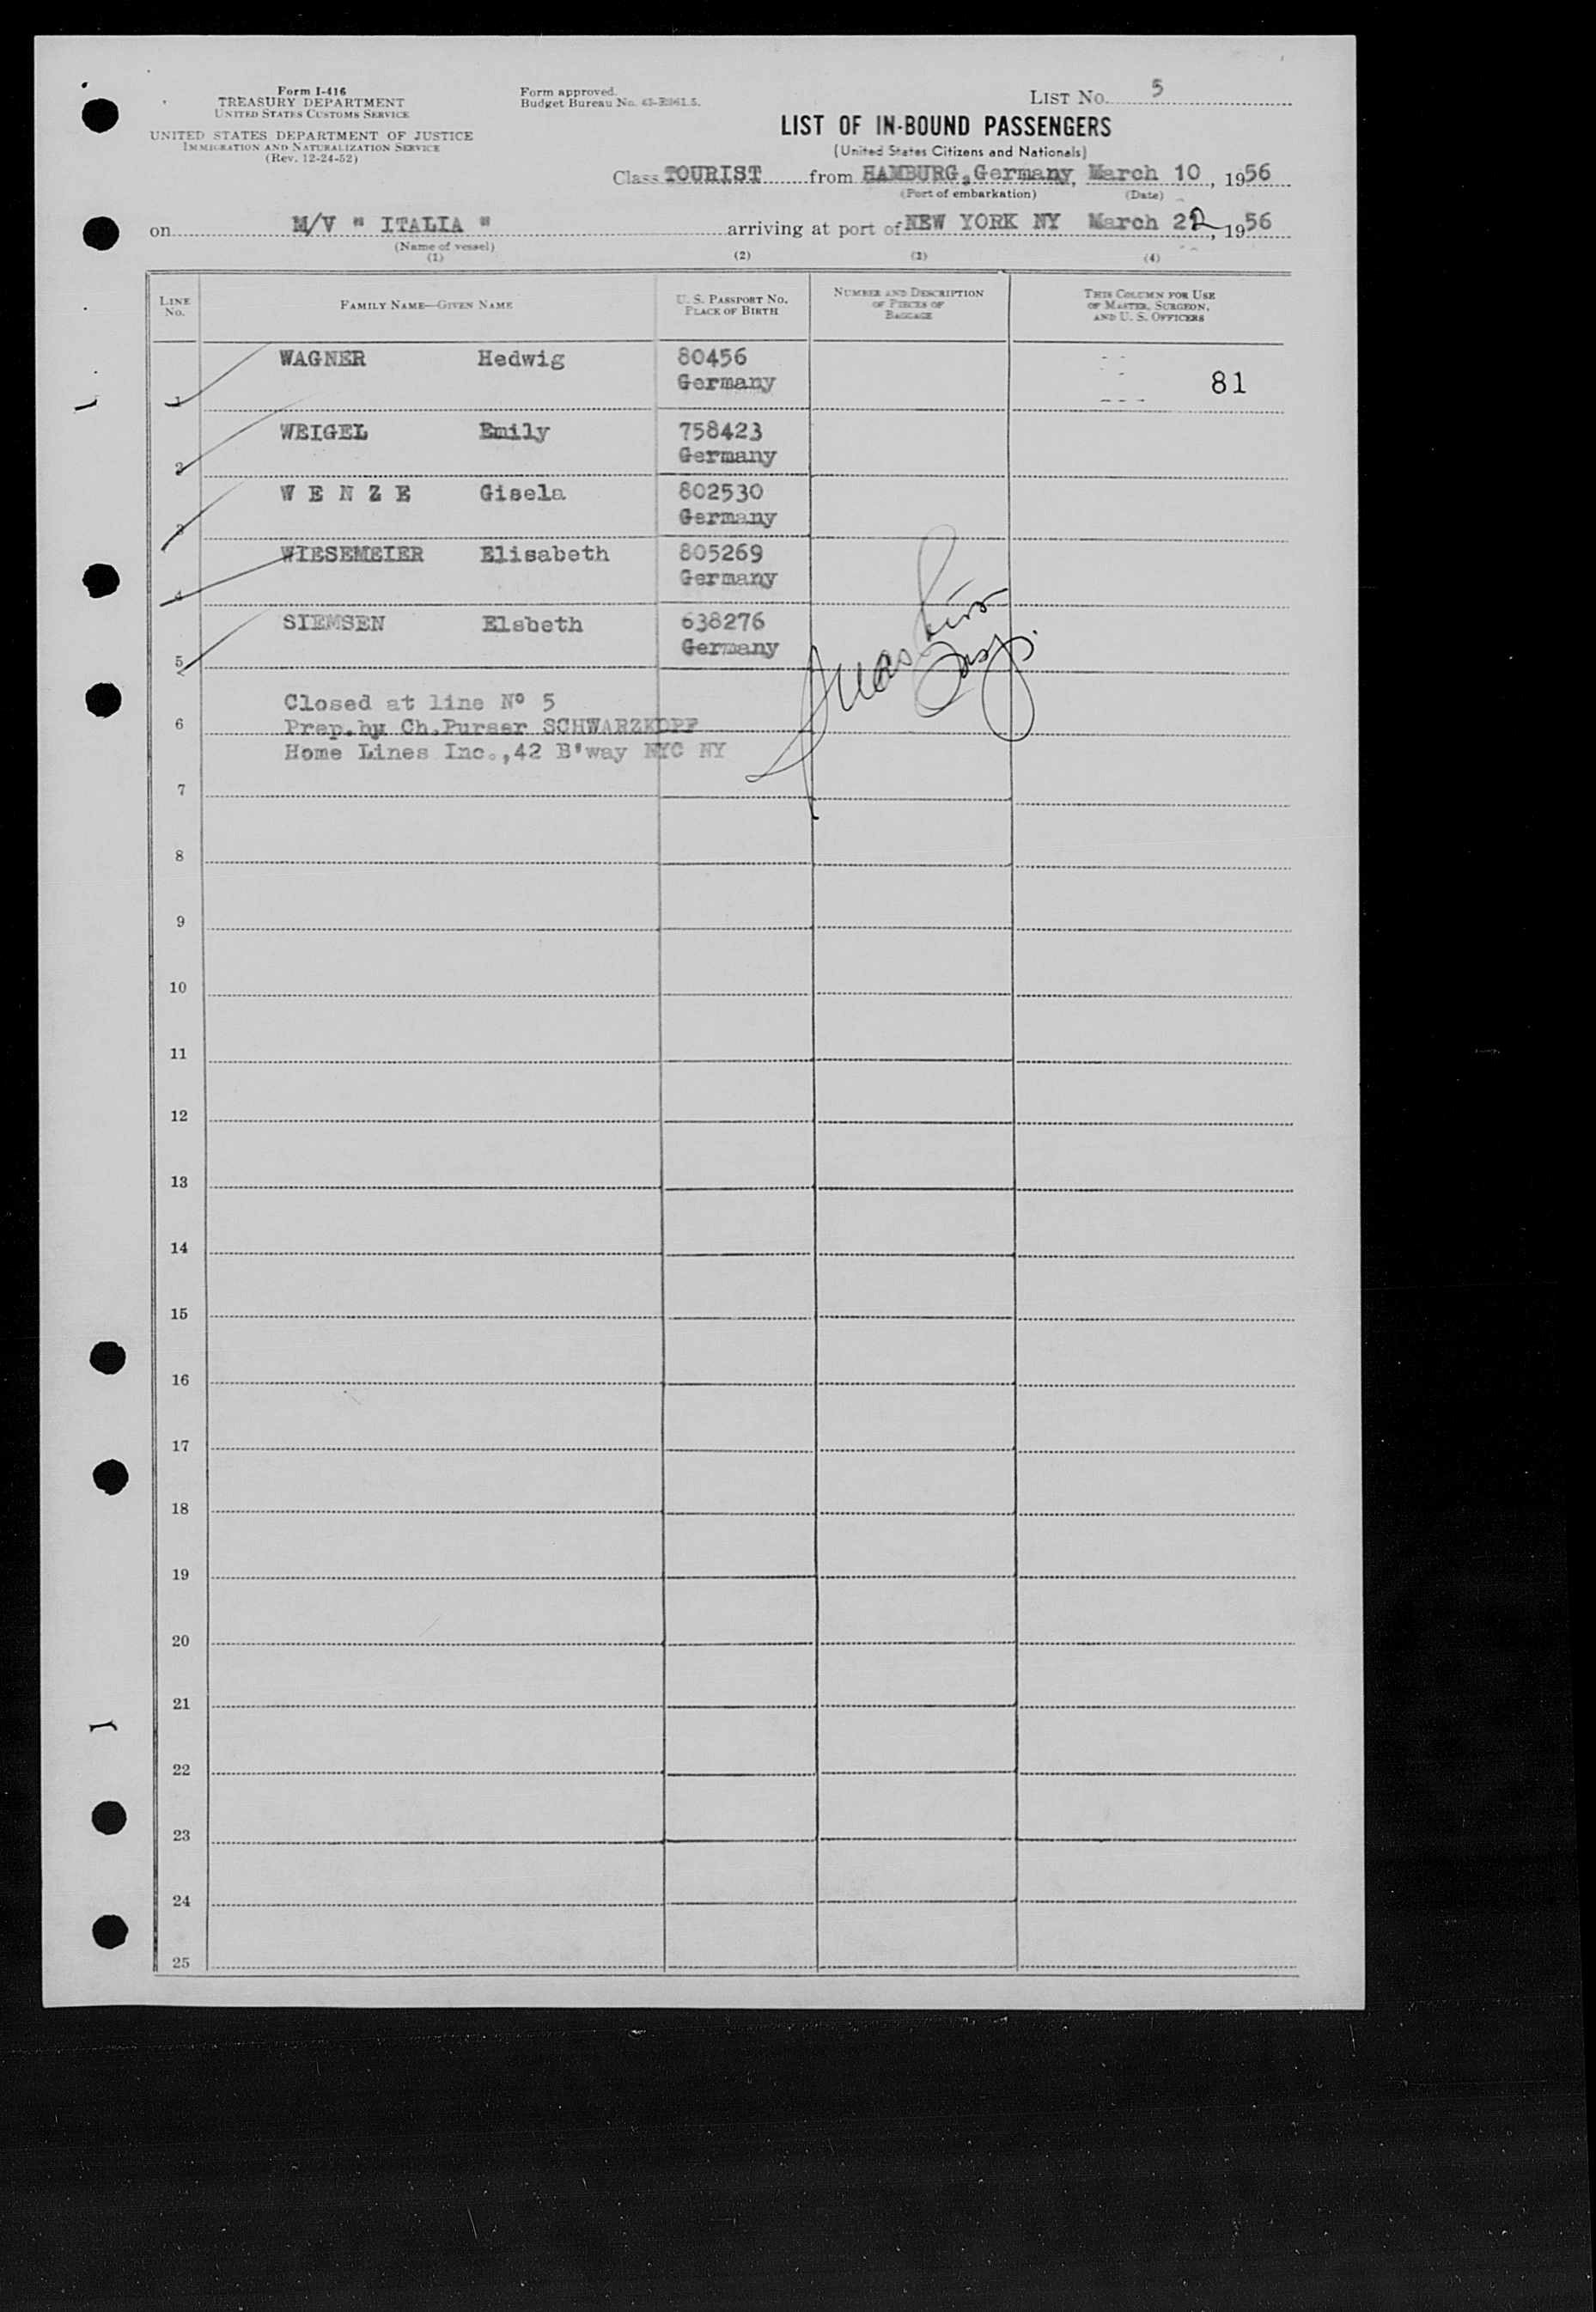 Form I-416
TREASURY DEPARTMENT
UNITED STATES CUSTOMS SERVICE
UNITED STATES DEPARTMENT OF JUSTICE
IMMIGRATION AND NATURALIZATION SERVICE
(Rev. 12-24-52)
Form approved.
Budget Bureau No.
LIST No. 5
LIST OF IN-BOUND PASSENGERS
(United States Citizens and Nationals)
Class TOURIST from HAMBURG,Germany, March 10, 1956
(Port of embarkation) (Date)
on M/V " ITALIA " arriving at port of NEW YORK NY March 22, 1956
(Name of vessel)
(1) (2) (3) (4)
LINE No. FAMILY NAME—GIVEN NAME U. S. PASSPORT No. PLACE OF BIRTH NUMBER AND DESCRIPTION OF PIECES OF BAGGAGE THIS COLUMN FOR USE OF MASTER, SURGEON, AND U. S. OFFICERS
1 WAGNER Hedwig 80456
Germany 81
2 WEIGEL Emily 758423
Germany
3 W E N Z E Gisela 802530
Germany
4 WIESEMEIER Elisabeth 805269
Germany
5 SIEMSEN Elsbeth 638276
Germany
Closed at line Nº 5
6 Prep.by Ch.Purser SCHWARZKOPF
Home Lines Inc.,42 B'way NYC NY
7
8
9
10
11
12
13
14
15
16
17
18
19
20
21
22
23
24
25